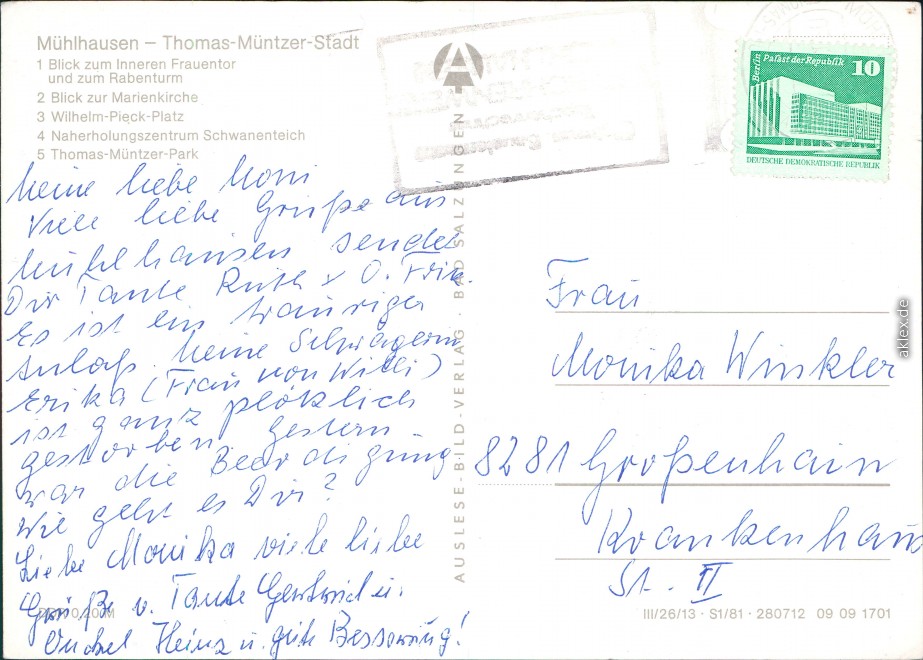 Mühlhausen – Thomas-Müntzer-Stadt
1 Blick zum Inneren Frauentor
und zum Rabenturm
2 Blick zur Marienkirche
3 Wilhelm-Pieck-Platz
4 Naherholungszentrum Schwanenteich
5 Thomas-Müntzer-Park
Meine liebe Moni
Viele liebe Grüße aus
Mühlhausen sendet
Dir Tante Ruth + O. Fritz.
Es ist ein trauriger
Anlaß. Meine Schwägerin
Erika (Frau von Willi)
ist ganz plötzlich
gestorben, gestern
war die Beerdigung
Wie geht es Dir?
Liebe Monika viele liebe
Grüße v. Tante Gertrud u.
Onkel Heinz u. gute Besserung!
AUSLESE-BILD-VERLAG · BAD SALZUNGEN
A
Berlin Palast der Republik 10
DEUTSCHE DEMOKRATISCHE REPUBLIK
Frau
Monika Winkler
8281 Großenhain
Krankenhaus
St. II
0,20 M
III/26/13 · S1/81 · 280712 09 09 1701
aklex.de